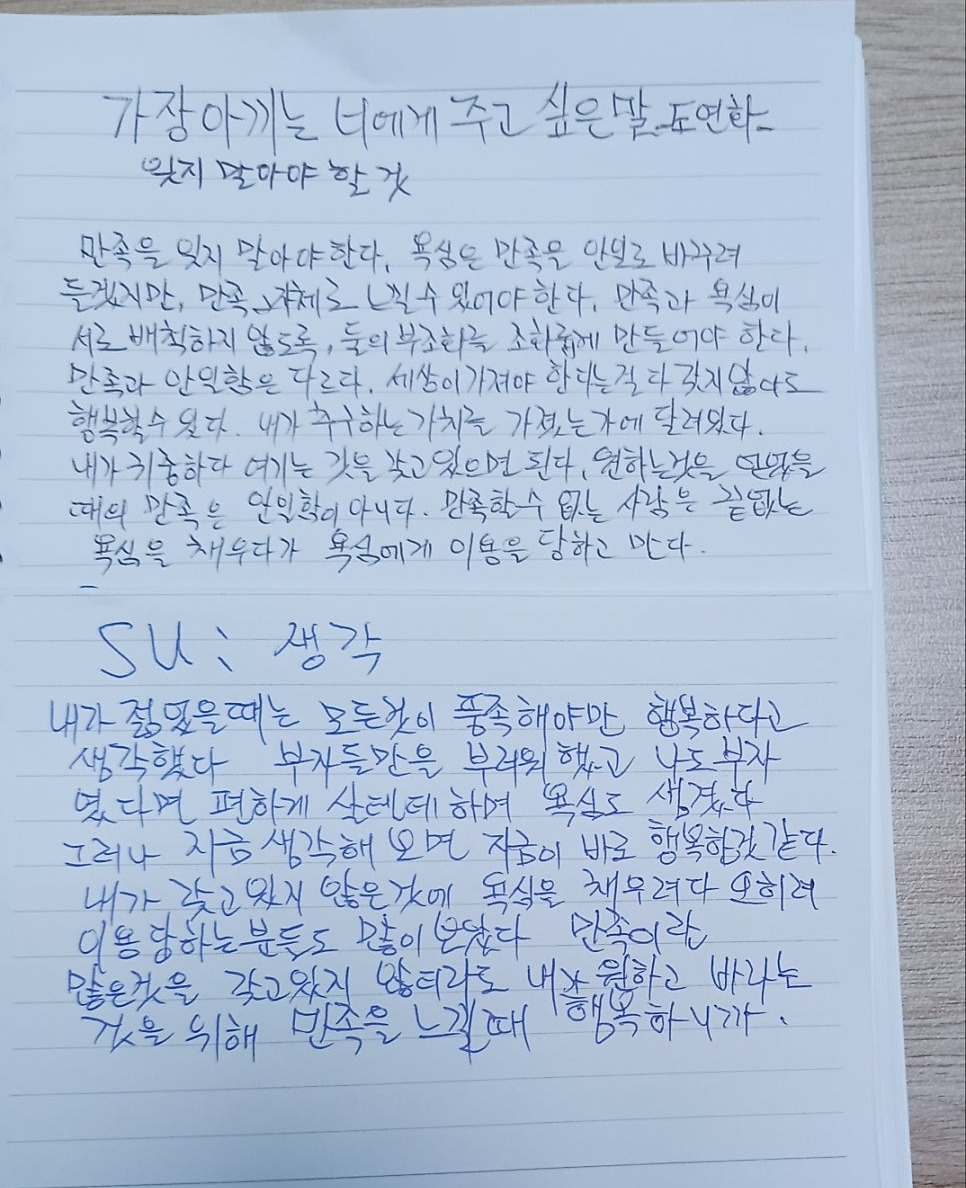 가장 아끼는 너에게 주고 싶은 말 - 도연화 -
잊지 말아야 할 것
만족을 잊지 말아야 한다. 욕심은 만족을 안일로 바꾸려
들겠지만, 만족 그 자체로 느낄 수 있어야 한다. 만족과 욕심이
서로 배척하지 않도록, 둘의 부조화를 조화롭게 만들어야 한다.
만족과 안일함은 다르다. 세상이 가져야 한다는 걸 다 갖지 않아도
행복할 수 있다. 내가 추구하는 가치를 가졌는가에 달려있다.
내가 귀중하다 여기는 것을 갖고 있으면 된다. 원하는 것을 얻었을
때의 만족은 안일함이 아니다. 만족할 수 없는 사람은 끝없는
욕심을 채우다가 욕심에게 이용을 당하고 만다.
SU : 생각
내가 젊었을때는 모든것이 풍족해야만 행복하다고
생각했다 부자들만을 부러워 했고 나도 부자
였다면 편하게 살텐데 하며 욕심도 생겼다
그러나 지금 생각해 보면 지금이 바로 행복한것 같다.
내가 갖고 있지 않은것에 욕심을 채우려다 오히려
이용당하는 분들도 많이 보았다 만족이란
많은것을 갖고있지 않더라도 내가 원하고 바라는
것을 위해 만족을 느낄때 행복하니까.